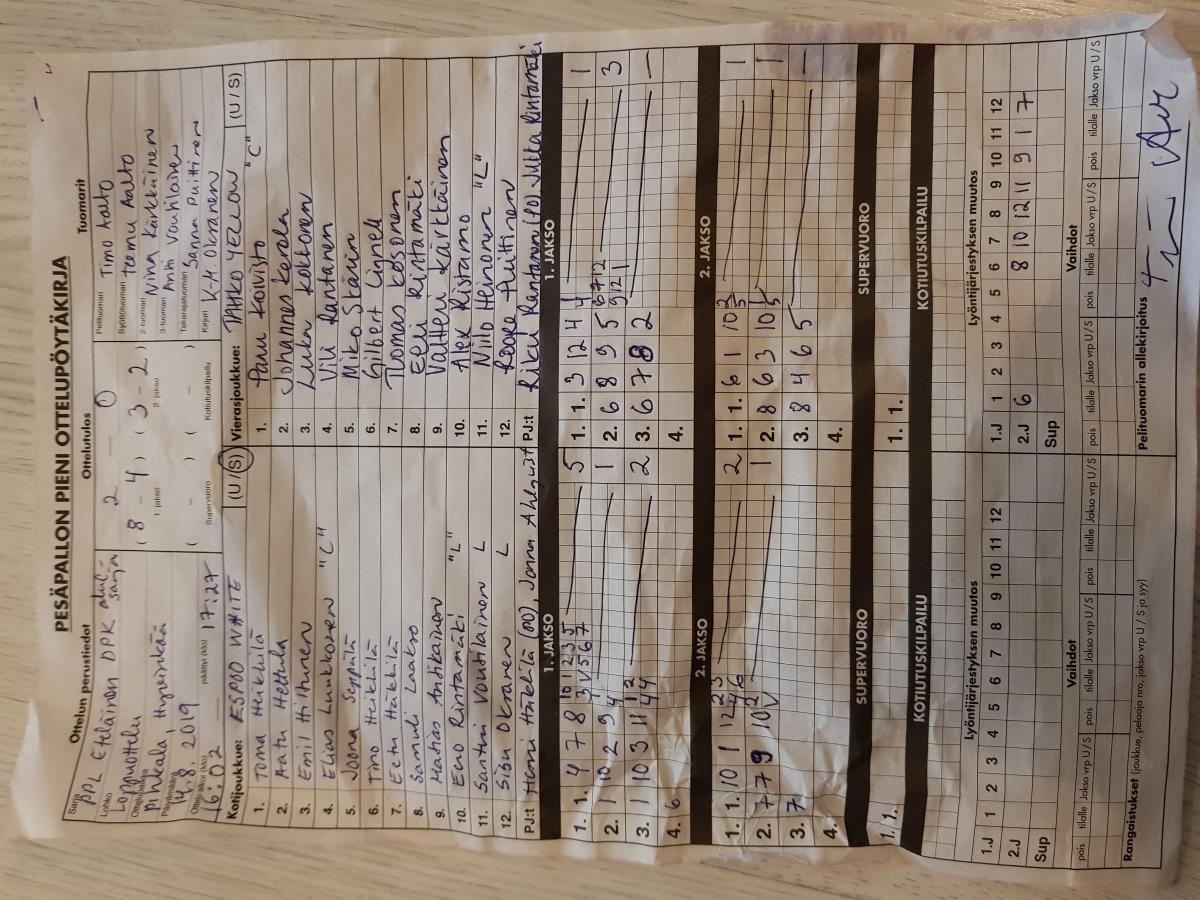 PESÄPALLON PIENI OTTELUPÖYTÄKIRJA
Ottelun perustiedot
Ottelutulos
Tuomarit
Sarja
PPL Eteläinen DPK alue-
sarja
Lohko
Loppuottelu
Ottelupaikka
Pihkala, Hyvinkää
Päivämäärä
14.8. 2019
Ottelu alkoi (klo)
16:02
päättyi (klo)
17:27
2 — 0
( 8 - 4 ) ( 3 - 2 )
1. jakso
2. jakso
( - ) ( - )
Supervuoro
Kotiutuskilpailu
Pelituomari Timo Aalto
Syöttötuomari Teemu Aalto
2-tuomari Nina Kärkkäinen
3-tuomari Antti Voutilainen
Takarajatuomari Sanna Puittinen
Kirjuri K-M Okranen
Kotijoukkue: ESPOO WHITE (U / S)
1. Toma Heikkilä
2. Aatu Hettula
3. Emil Hiltunen
4. Elias Luukkonen "C"
5. Joona Seppälä
6. Timo Heikkilä
7. Eetu Härkilä
8. Samuli Laakso
9. Matias Antikainen
10. Eero Rintamäki "L"
11. Santeri Voutilainen L
12. Sisu Okranen L
PJ:t Henri Härkilä (PO), Janna Ahlqvist
Vierasjoukkue: TAHKO YELLOW (U / S)
1. Paavu Koivisto "C"
2. Johannes Korola
3. Luka Kokkonen
4. Vili Rantanen
5. Miko Starin
6. Gilbert Lignell
7. Tuomas Kosonen
8. Eeli Rintamäki
9. Valtteri Kärkkäinen
10. Alex Ristamo
11. Niilo Heinonen "L"
12. Roope Puittinen
PJ:t Riku Rantanen (PO) Jukka Rintamäki
1. JAKSO
1. 1. 4 7 8 5
2. 1 10 2 9 1
3. 1 10 3 11 2
4. 6
1. JAKSO
1. 1. 3 12 4 1
2. 6 8 9 5 3
3. 6 7 8 2 —
4.
2. JAKSO
1. 1. 10 1 12 2
2. 7 7 9 10 1
3. 7
4.
2. JAKSO
1. 1. 6 1 10 1
2. 8 6 3 10 1
3. 8 4 6 5 —
4.
SUPERVUORO
1. 1.
SUPERVUORO
1. 1.
KOTIUTUSKILPAILU
KOTIUTUSKILPAILU
Lyöntijärjestyksen muutos
1.J 1 2 3 4 5 6 7 8 9 10 11 12
2.J
Sup
Lyöntijärjestyksen muutos
1.J 1 2 3 4 5 6 7 8 9 10 11 12
2.J 6 8 10 12 11 9 1 7
Sup
Vaihdot
pois tilalle Jakso vrp U / S pois tilalle Jakso vrp U / S pois tilalle Jakso vrp U / S
Vaihdot
pois tilalle Jakso vrp U / S pois tilalle Jakso vrp U / S pois tilalle Jakso vrp U / S
Rangaistukset (joukkue, pelaaja nro, jakso vrp, U / S ja syy)
Pelituomarin allekirjoitus